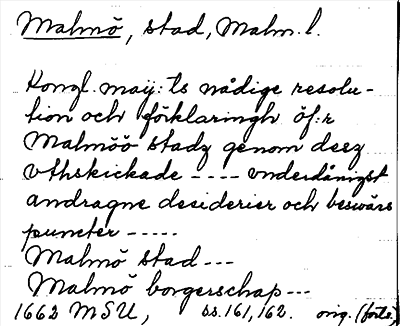 Malmö, stad, Malm. l.
Kongl. maij:ts nådige resolu-
tion och förklaringh öf:r
Malmöö stadz genom desz
vthskickade ---- vnderdånigst
andragne desiderier och beswärs
puncter -----
Malmö stad ---
Malmö borgerschap ---
1662 MSU, ss. 161, 162. orig. (förte.)